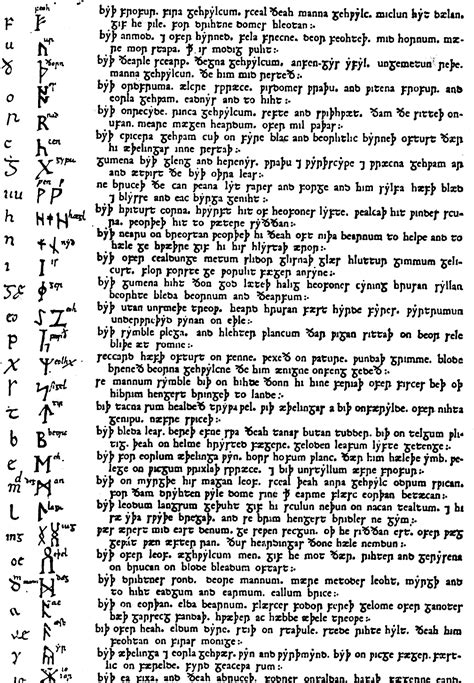 f ᚠ feoh byþ frofur. fira gehwylcum. sceal ðeah manna gehwylc. miclun hyt dælan.
gif he wile. for drihtne domes hleotan:.
u ᚢ ur byþ anmod. ⁊ ofer hyrned. fela frecne. deor feohteþ. mid hornum. mæ-
re mor stapa. þ is modig wuht:.
ð ᚦ ðorn byþ ðearle scearp. ðegna gehwylcum. anfen-gys yfyl. ungemetun reþe.
manna gehwylcun. ðe him mid resteð:.
o ᚩ os byþ ordfruma. ælcre spræce. wisdomes wraþu. and witena frofur. and
eorla gehwam. eadnys and to hiht:.
r ᚱ rad byþ onrecyde. rinca gehwylcum. sefte and swiþhwæt. ðam ðe sitteþ on-
ufan. meare mægen heardum. ofer mil paþas:.
c ᚳ cen byþ cwicera gehwam cuþ on fyre blac and beorhtlic byrneþ oftust ðær
hi æþelingas inne restaþ:.
ᚷ gyfu gumena byþ gleng and herenys. wraþu ⁊ wyrþscype ⁊ wræcna gehwam ar
and ætwist ðe byþ oþra leas:.
uu ᚹ wen ne bruceþ ðe can weana lyt sares and sorge and him sylfa hæfþ blæd
⁊ blysse and eac byrga geniht:.
h ᚻ hægl byþ hwitust corna. hwyrft hit of heofones lyfte. wealcaþ hit windes scu-
ra. weorþeþ hit to wætere syððan:.
n ᚾ nyd byþ nearu on breostan weorþeþ hi ðeah oft niþa bearnum to helpe and to
hæle ge hwæþre gif hi his hlystaþ æror:.
i ᛁ is byþ ofer cealdunge metum slidor glisnaþ glæs hluttur gimmum geli-
cust. flor forste ge woruht fæger ansyne:.
ger byþ gumena hiht ðon god læteþ halig heofones cyning hrusan syllan
beorhte bleda beornum and ðearfum:.
eo eoh byþ utan unsmeþe treow. heard hrusan fæst hyrde fyres. wyrtrumun
underwreþyd wynan on eþle:.
p ᛈ peorð byþ symble plega. and hlehter wlancum ðar wigan sittaþ on beor sele
bliþe æt somne:.
x ᛉ eolhx seccard hæfþ oftust on fenne. wexeð on wature. wundaþ grimme. blode
breneð beorna gehwylcne ðe him ænigne onfeng gedeð:.
s sigel se mannum symble biþ on hihte ðonn hi hine feriaþ ofer fisces beþ oþ
hibrim hengest bringeþ to lande:.
t ᛏ tir biþ tacna sum healdeð trywa wel. wiþ æþelingas a biþ onfærylde. ofer nihta
genipu. næfre swiceþ:.
b ᛒ beorc byþ bleda leas. bereþ efne swa ðeah tanas butan tudder. biþ on telgum wli-
tig. þeah on helme hrysted fægere. geloden leafum lyfte getenge:.
e ᛖ eh byþ for eorlum æþelinga wyn. hors hofum wlanc. ðær him hæleþe ymb. we-
lege on wicgum wrixlaþ spræce. ⁊ biþ unstyllum æfre frofur:.
m ᛗ man byþ on myrgþe his magan leof. sceal þeah anra gehwylc oðrum swican.
for ðam dryhten wyle dome sine þ earme flæsc eorþan betæcan:.
l ᛚ lagu byþ leodum langsum geþuht gif hi sculun neþun on nacan tealtum. ⁊ hi
sæ yþa swyþe bregaþ. and se brim hengest bridles ne gym:.
ing ing wæs ærest mid east denum. ge sewen secgun. oþ he siððan est. ofer wæg
gewat wæn æfter ran. ðus heardingas ðone hæle nemdun:.
oe ᛟ eþel byþ ofer leof. æghwylcum men. gif he mot ðær. rihter and gerysena
on brucan on blode bleadum oftast:.
d ᛞ dæg byþ drihtnes sond. deore mannum. mære metodes leoht. myrgþ and
to hiht eadgum and earmum. eallum brice:.
a ᚪ ac byþ on eorþan. elda bearnum. flæsces fodor fereþ gelome ofer ganotes
bæþ garsecg fandaþ. hwæþer ac hæbbe æþele treowe:.
æ ᚫ æsc biþ ofer heah. eldum dyre. stiþ on staþule. stede rihte hylt. ðeah him
feohtan on firas monige:.
y ᚣ yr byþ æþelinga ⁊ eorla gehwæs. wyn and wyrþmynd. byþ on wicge fæger. fæst-
lic on færelde. fyrd geacewa sum:.
io ior byþ ea fixa. and ðeah abruceþ. fodres onfaldan. hafaþ fægerne eard.